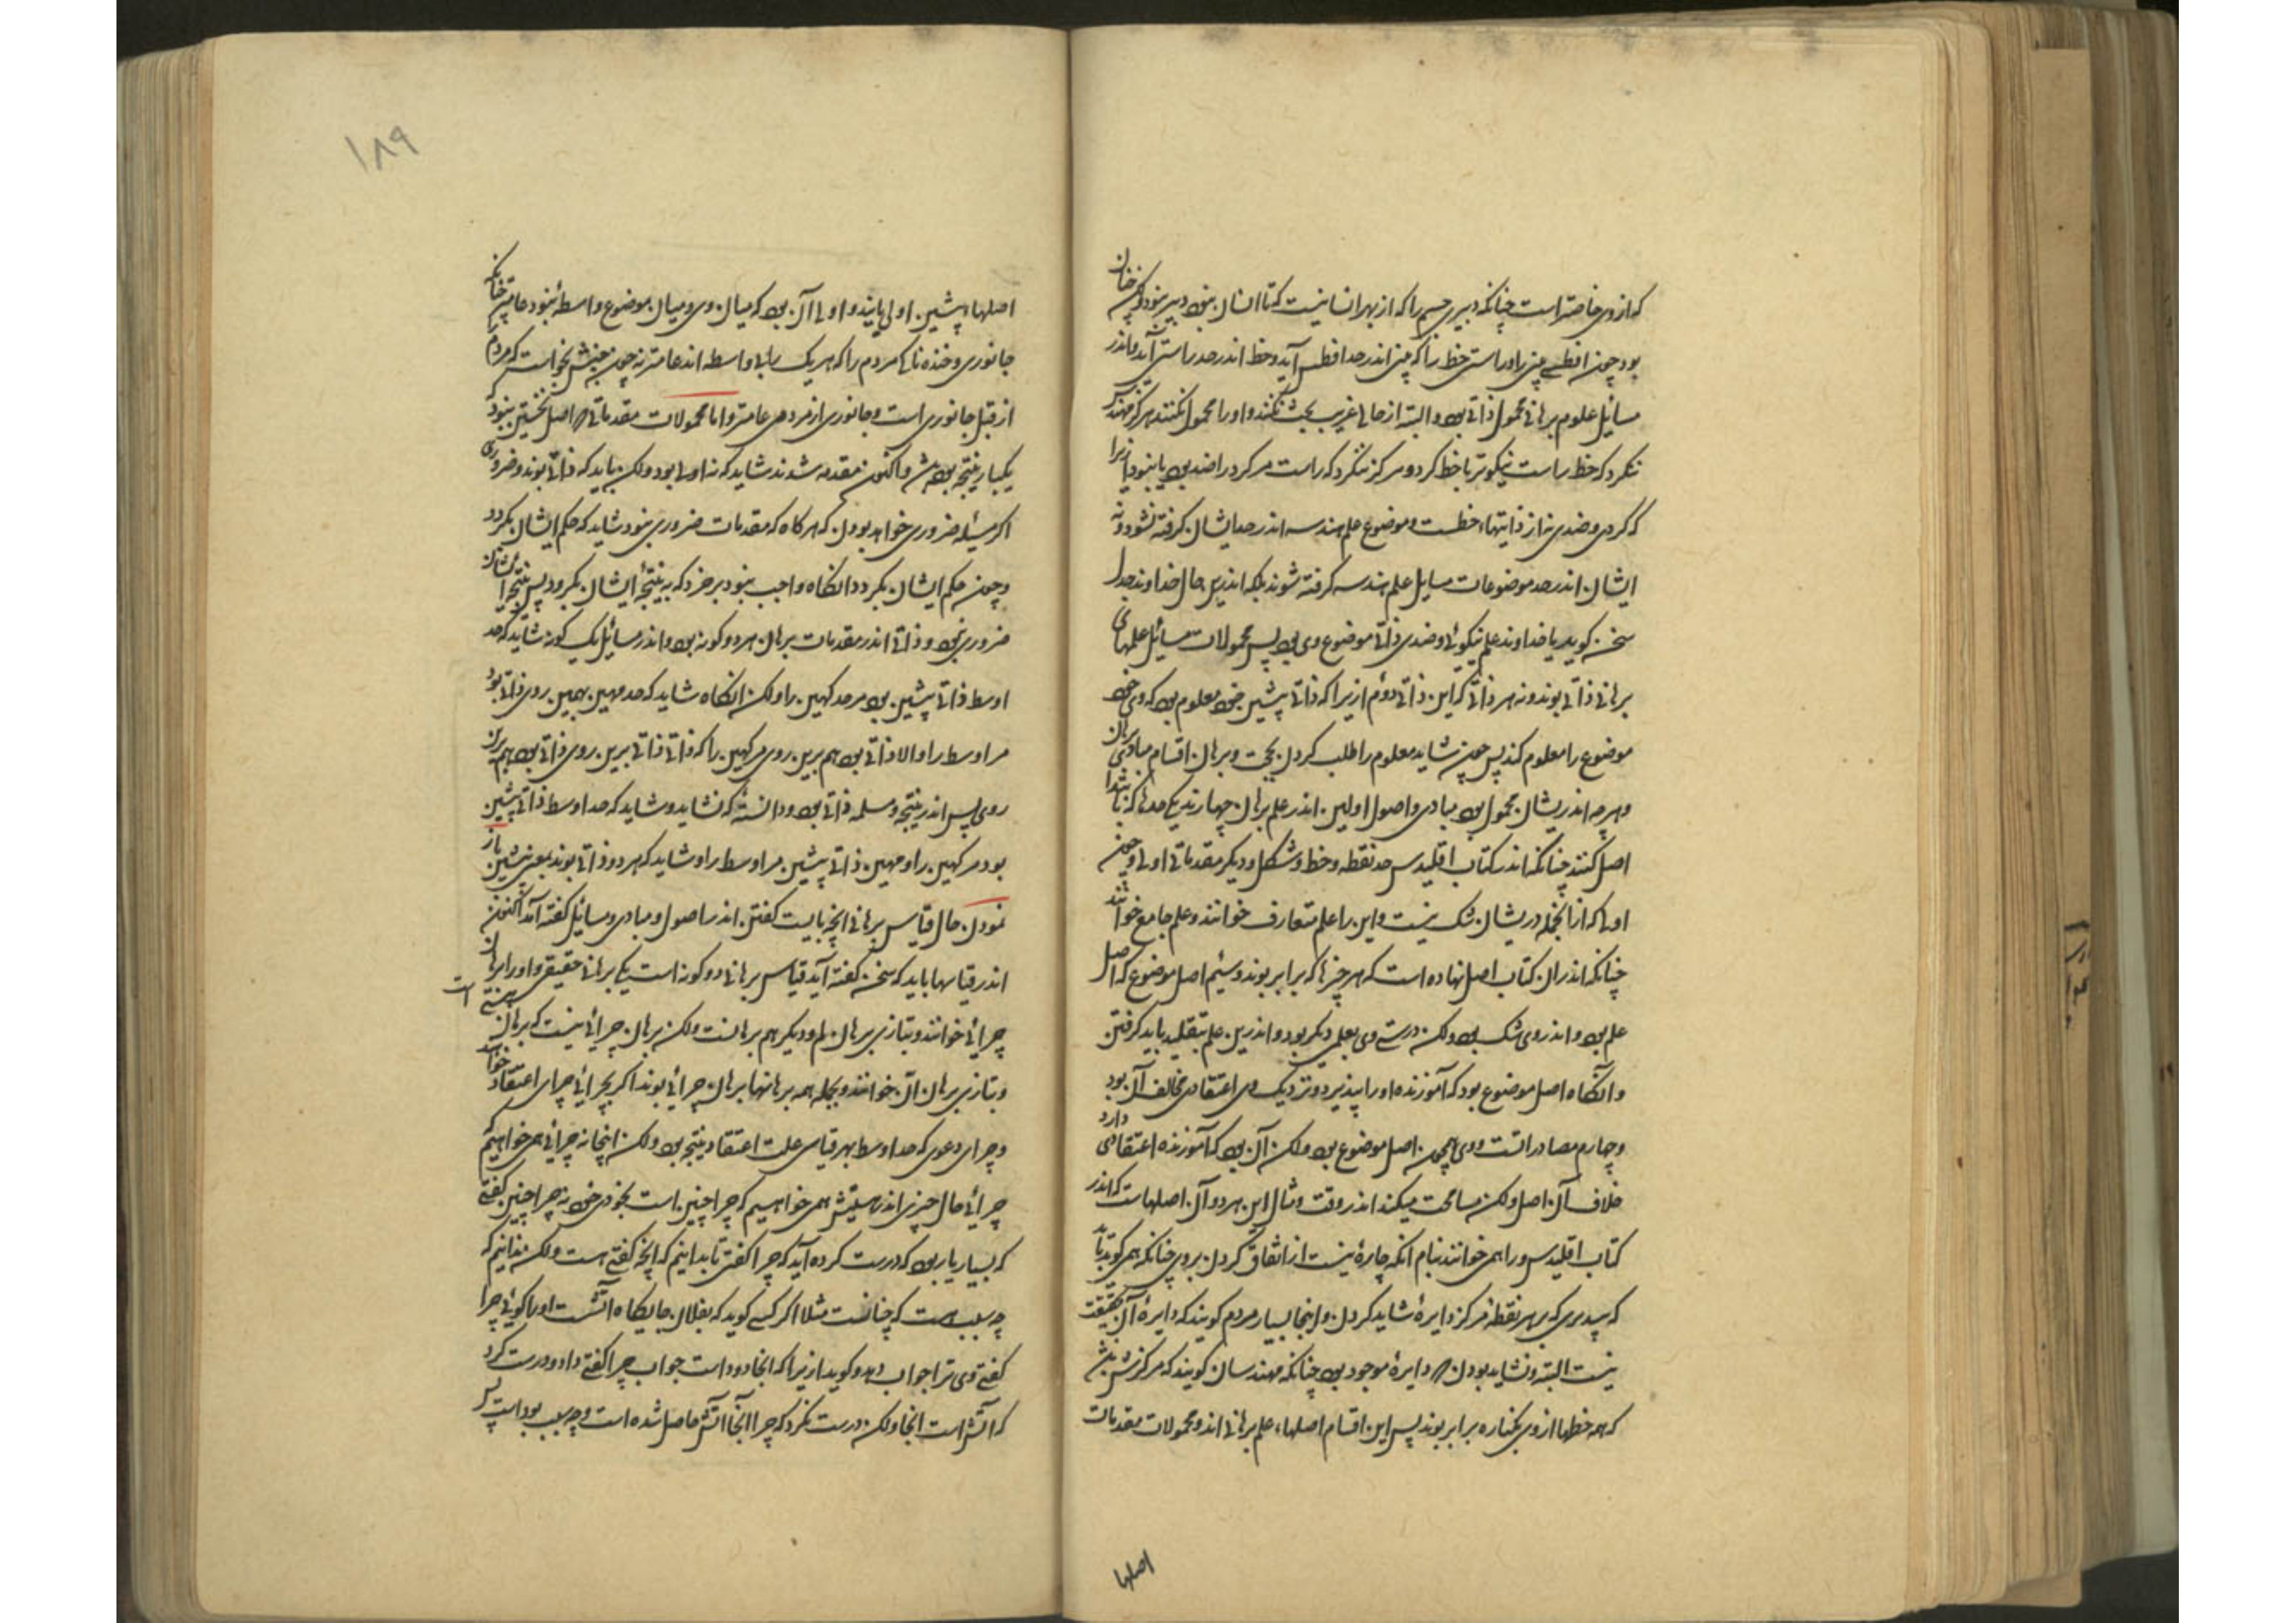 که از وی خاصتر است چنانکه دبیری جسم را که از بهر انسانیست که تا انسان نبود دبیر نبود و نه چنان
بود چون افطسی بینی را و راستی خط را که بینی اندر حد افطس آید و خط اندر حد راستی آید و اندر
مسائل علوم برهانی محمول ذاتی بود و البته از حالی غریب بحث نکنند و او را محمول نکنند هرگز مهندس
ننگرد که خط راست نیکوتر یا خط گرد و هرگز ننگرد که راست مر گرد را ضد بود یا نبود زیرا
که گردی و ضدی نه از ذاتیهاء خطست و موضوع علم هندسه اندر حد ایشان گرفته نشود و نه
ایشان اندر حد موضوعات مسایل علم هندسه گرفته شوند بلکه اندرین حال خداوند جدل
سخن گوید یا خداوند علم نیکوئی و ضدی ذاتی موضوع وی بود پس محمولات مسائل علمهای
برهانی ذاتی بوند و نه هر ذاتی که این ذاتی دوم ازیرا که ذاتی پیشین خود معلوم بود که وی خود
موضوع را معلوم کند پس چون شاید معلوم را طلب کردن بحجت و برهان اقسام مبادی برهان
و هرچه اندریشان محمول بود مبادی و اصول اولین اندر علم برهان چهارند یکی حدها که بابتدا
اصل کنند چنانکه اندر کتاب اقلیدس حد نقطه و خط و شکل و دیگر مقدماتی اولی و چون
اولی که از آنجمله دریشان شک نیست و این را علم متعارف خوانند و علم جامع خوانند
چنانکه اندران کتاب اصل نهاده است که هر چیزها که برابر بوند و سیّم اصل موضوع که اصل
علم بود و اندر وی شک بود ولکن درستی وی بعلمی دیگر بود و اندرین علم بتقلید باید گرفتن
و آنگاه اصل موضوع بود که آموزنده او را بپذیرد و نزدیک وی اعتقادی مخالف آن بود
و چهارم مصادراتست و وی همچون اصل موضوع بود ولکن آن بود که آموزنده اعتقادی دارد
خلاف آن اصل ولکن مسامحت میکند اندر وقت و مثال این هر دو آن اصلهاست که اندر
کتاب اقلیدس ورا همی خوانند بنام آنکه چارهٔ نیست از اتفاق کردن بروی چنانکه همی گوید باید
که بپذیری که بر هر نقطه مرکز دایرهٔ شاید کردن و اینجا بسیار مردم گویند که دایرهٔ آن بحقیقت
نیست البته و نشاید بودن دایرهٔ موجود بود چنانکه مهندسان گویند که مرکزش باشد
که همه خطها از وی بکناره برابر بوند پس این اقسام اصلهاء علم برهانی اند و محمولات مقدمات
اصلها
۱۸۹
اصلهاء پیشین اولی بایند و اولی آن بود که میان وی و میان موضوع واسطهٔ نبود عامتر چنانکه
جانوری و خنده ناکی مردم را که هر یک را بی واسطه اند عامتر نه چون جنبش بخواست که مردم را
از قبل جانوری است و جانوری از مردمی عامتر و اما محمولات مقدماتی که اصل نخستین نبود
یکبار نتیجه بوده اند و اکنون مقدمه شدند شاید که نه اولی بود ولکن باید که ذاتی بوند و ضروری
اگر مسئله ضروری خواهد بودن که هرگاه که مقدمات ضروری نبود شاید که حکم ایشان بگردد
و چون حکم ایشان بگردد آنگاه واجب نبود بر خرد که به نتیجهٔ ایشان بگرود پس نتیجهٔ ایشان
ضروری نبود و ذاتی اندر مقدمات برهان هر دو گونه بود و اندر مسائل یک گونه شاید که حد
اوسط ذاتی پیشین بود مر حد کهین را ولکن آنگاه شاید که حد مهین بهمین روی ذاتی بود
مر اوسط را والا ذاتی بود هم برین روی مر کهین را که ذاتی ذاتی برین روی ذاتی بود هم بران
روی پس اندر نتیجه و مسئله ذاتی بود و دانستهٔ که نشاید و شاید که حد اوسط ذاتی پیشین
بود مر کهین را و مهین ذاتی پیشین مر اوسط را و شاید که هر دو ذاتی بوند بمعنی پیشین باز
نمودن حال قیاس برهانی آنچه بایست گفتن اندر اصول و مبادی و مسائل گفته آمد اکنون
اندر قیاسها باید که سخن گفته آید قیاس برهانی دو گونه است یکی برهانی حقیقی و او را برهان
چرائی خوانند و بتازی برهان لم و دیگر هم برهانست ولکن برهان چرائی نیست که برهان هستی است
و بتازی برهان ان خوانند و بجمله همه برهانها برهان چرائی بوند اگر بچرائی چرای اعتقاد خواهند
و چرای دعوی که حد اوسط بهر قیاسی علت اعتقاد نتیجه بود ولکن اینجا نه چرائی همی خواهیم که
چرائی حال چیزی اندر هستیش همی خواهیم که چرا چنین است بخودی خود نه چرا چنین گفتی
که بسیار بار بود که درست کرده آید که چرا گفتی تا بدانیم که آنچه گفتی هست ولکن ندانیم که
چه سببست که چنانست مثلا اگر کسی گوید که بفلان جایگاه آتشست او را گوئی چرا
گفتی وی ترا جواب دهد و گوید ازیرا که آنجا دود است جواب چرا گفتی داد و درست کرد
که آتش است آنجا ولکن درست نکرد که چرا آنجا آتش حاصل شده است و چه سبب بود است پس